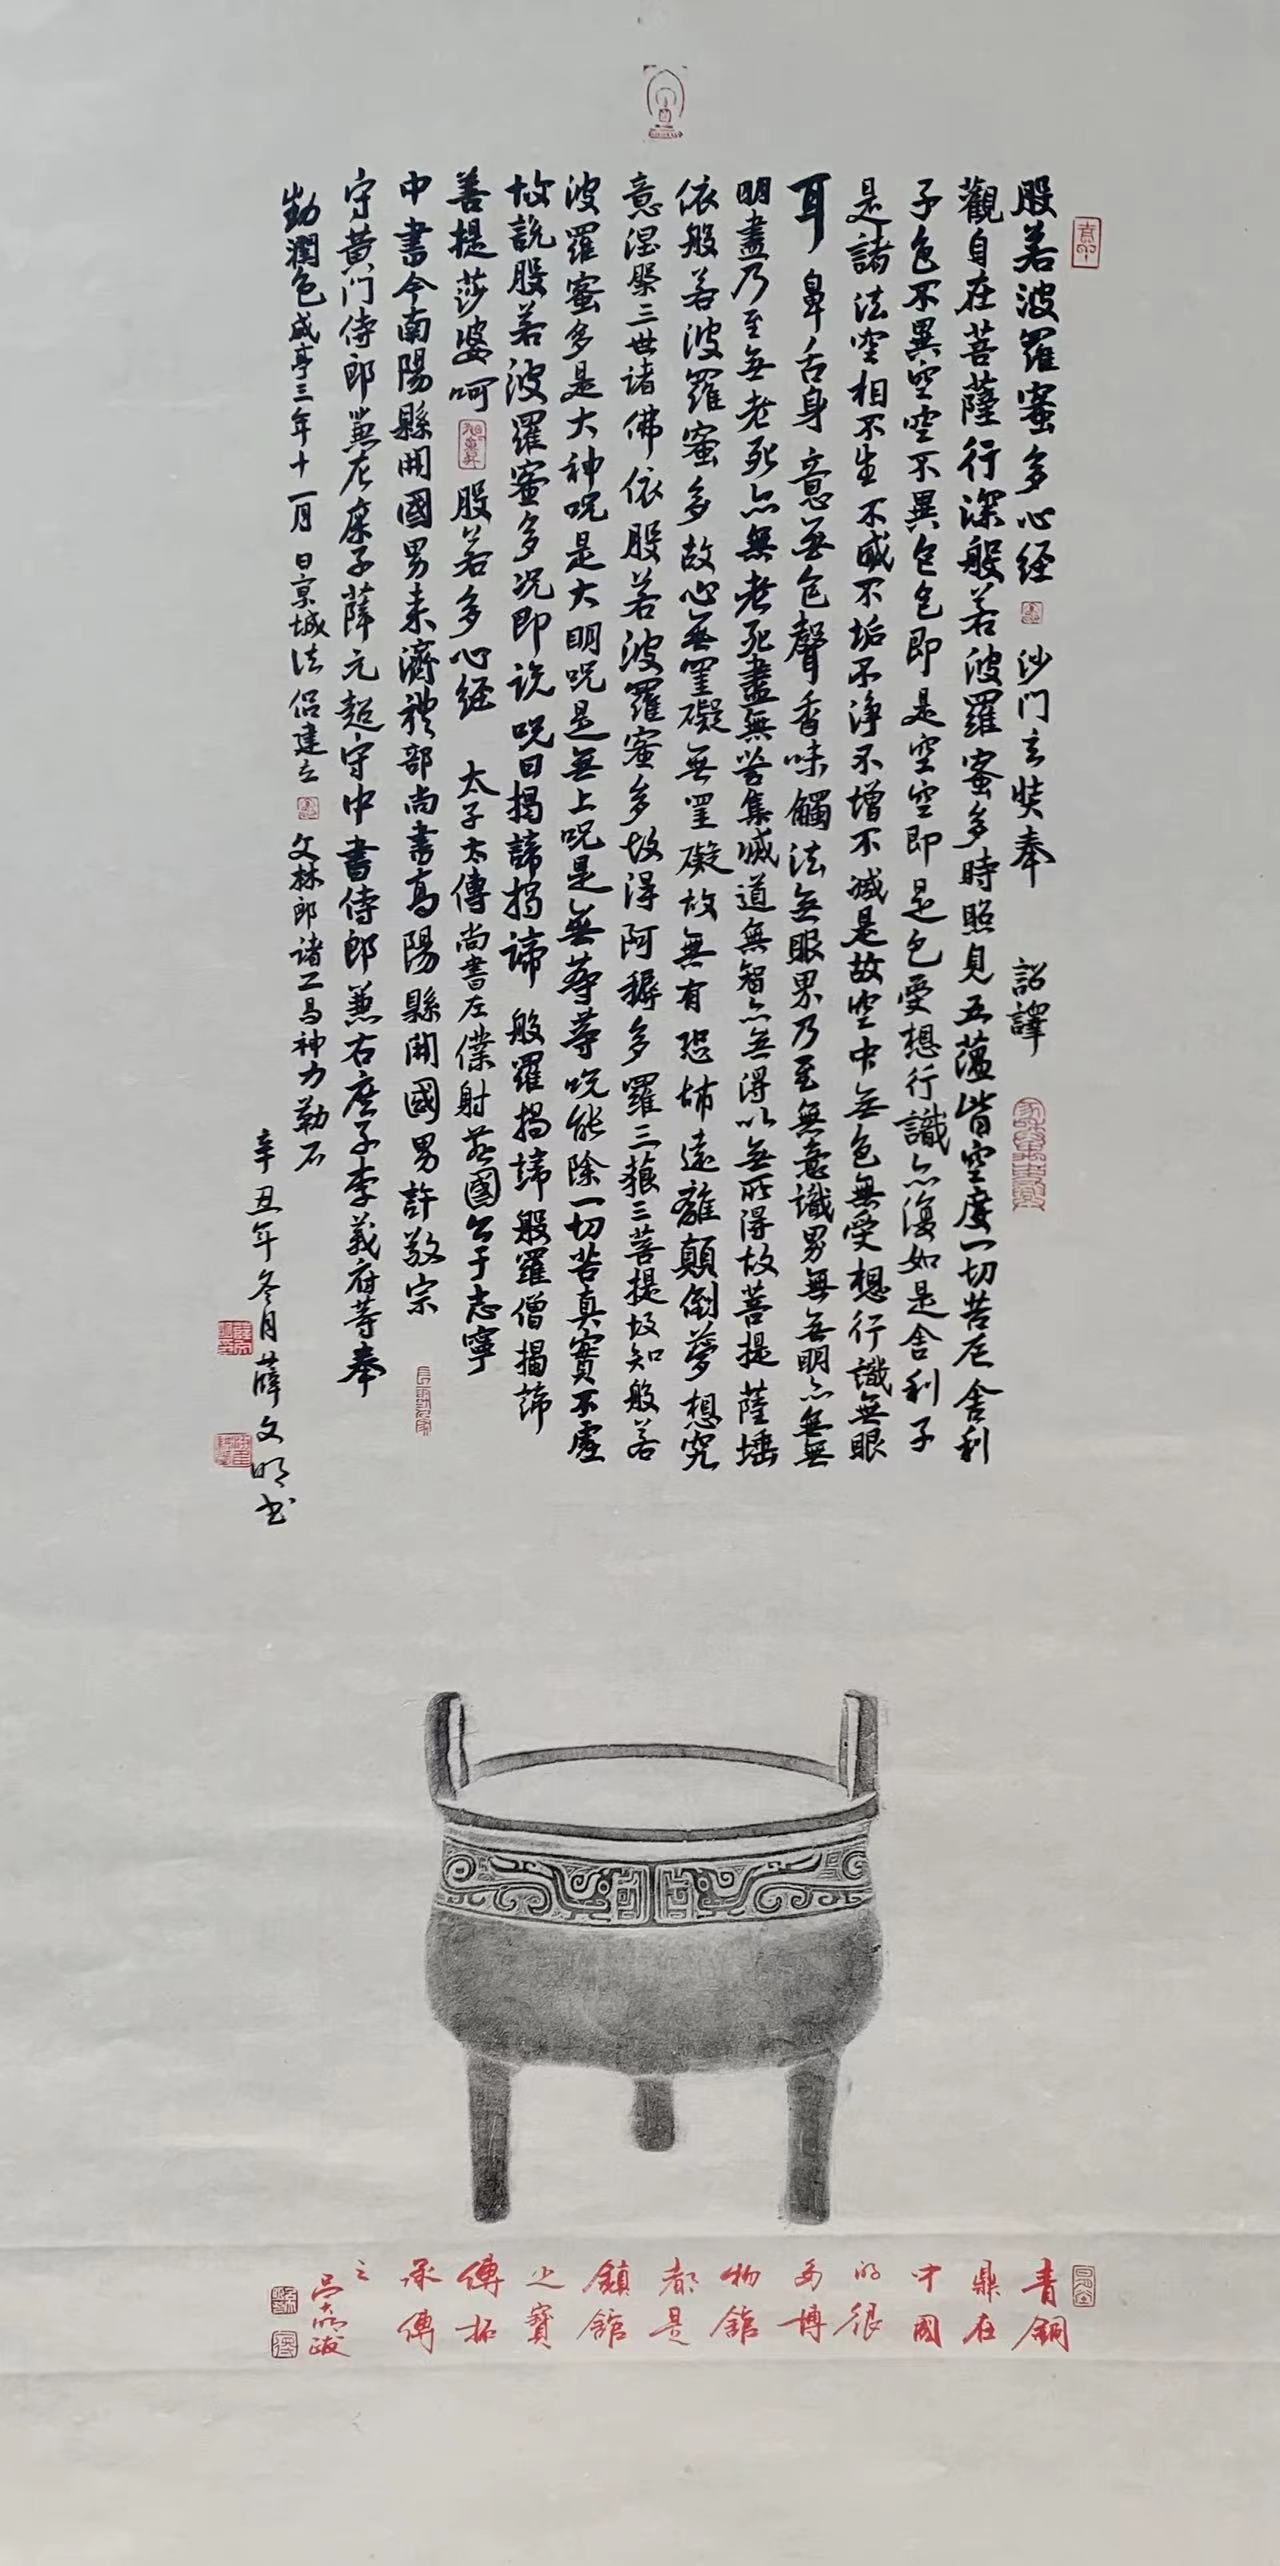 般若波羅蜜多心経 沙门玄奘奉 詔譯
觀自在菩薩行深般若波羅蜜多時照見五蕴皆空度一切苦厄舍利
子色不異空空不異色色即是空空即是色受想行識亦復如是舍利子
是諸法空相不生不滅不垢不淨不增不減是故空中無色無受想行識無眼
耳鼻舌身意無色聲香味觸法無眼界乃至無意識界無無明亦無無
明盡乃至無老死亦無老死盡無苦集滅道無智亦無得以無所得故菩提薩埵
依般若波羅蜜多故心無罣礙無罣礙故無有恐怖遠離顛倒夢想究
意涅槃三世诸佛依般若波羅蜜多故得阿耨多羅三藐三菩提故知般若
波羅蜜多是大神呪是大明呪是無上呪是無等等呪能除一切苦真實不虛
故說般若波羅蜜多呪即说呪曰揭諦揭諦 般羅揭諦般羅僧揭諦
菩提莎婆呵 般若多心経 太子太傅尚書左僕射燕國公于志寧
中書令南陽縣開國男来濟禮部尚書高陽縣開國男許敬宗
守黄门侍郎兼左庶子薛元超守中書侍郎兼右庶子李義府等奉
勑潤色咸亨三年十一月 日京城法侣建立 文林郎诸葛神力勒石
辛丑年冬月薛文明书
青銅
鼎在
中國
的很
多博
物館
都是
鎮館
之寶
傳拓
承傳
之